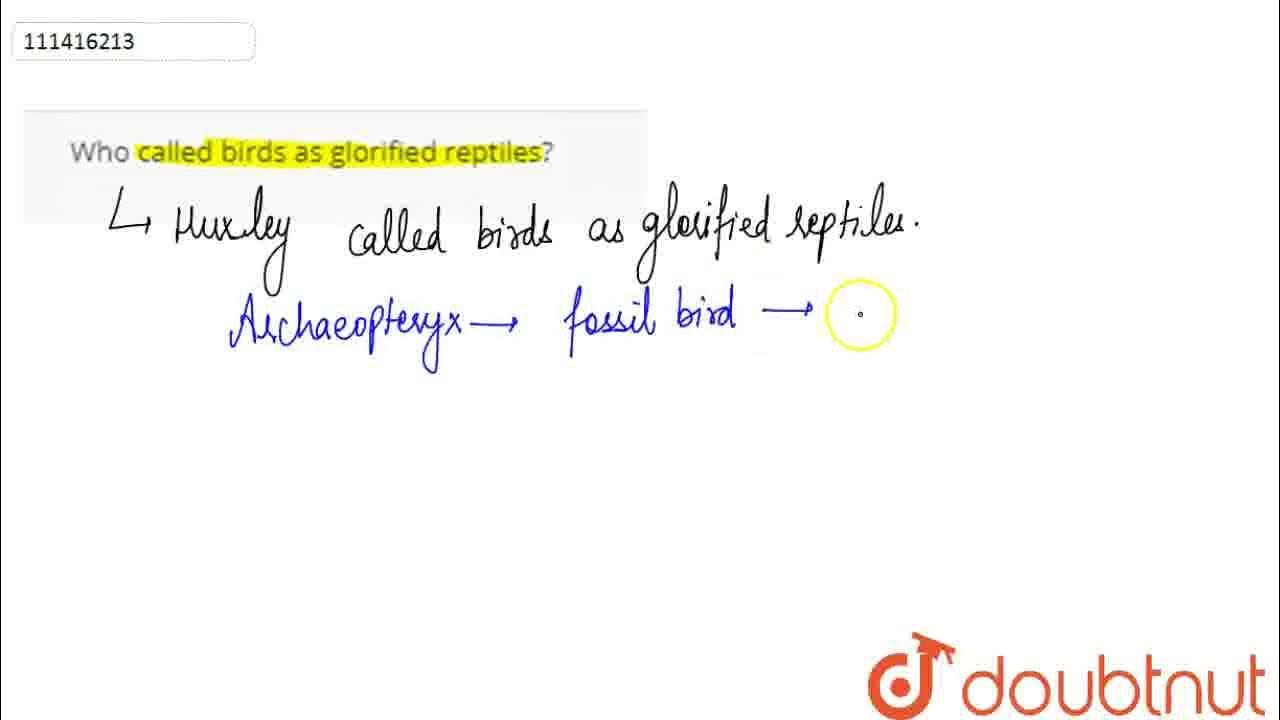 111416213
Who called birds as glorified reptiles?
↳ Huxley called birds as glorified reptiles.
Archaeopteryx → fossil bird →
doubtnut